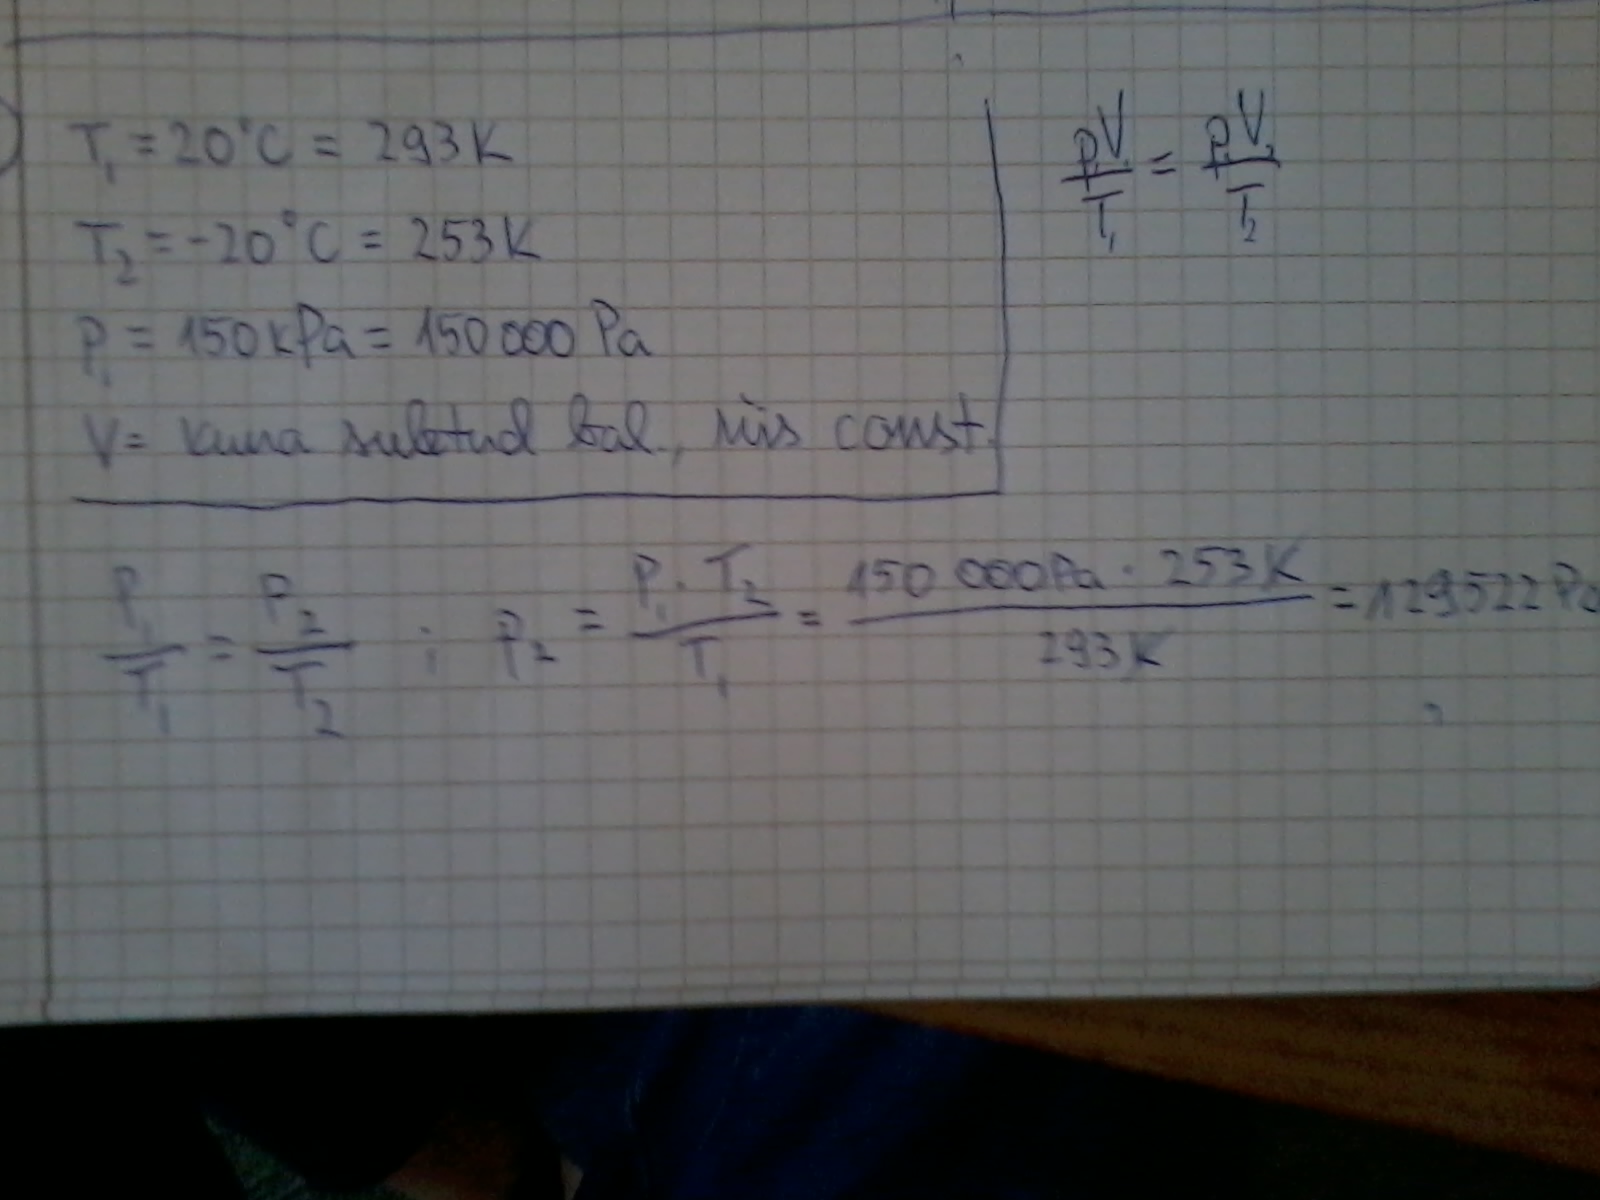 T₁ = 20°C = 293K
T₂ = -20°C = 253K
P₁ = 150 kPa = 150 000 Pa
V = kuna suletud bal., siis const.
pV/T₁ = pV/T₂
P₁/T₁ = P₂/T₂ ; P₂ = P₁·T₂/T₁ = 150 000Pa · 253K/293K = 129522 Pa